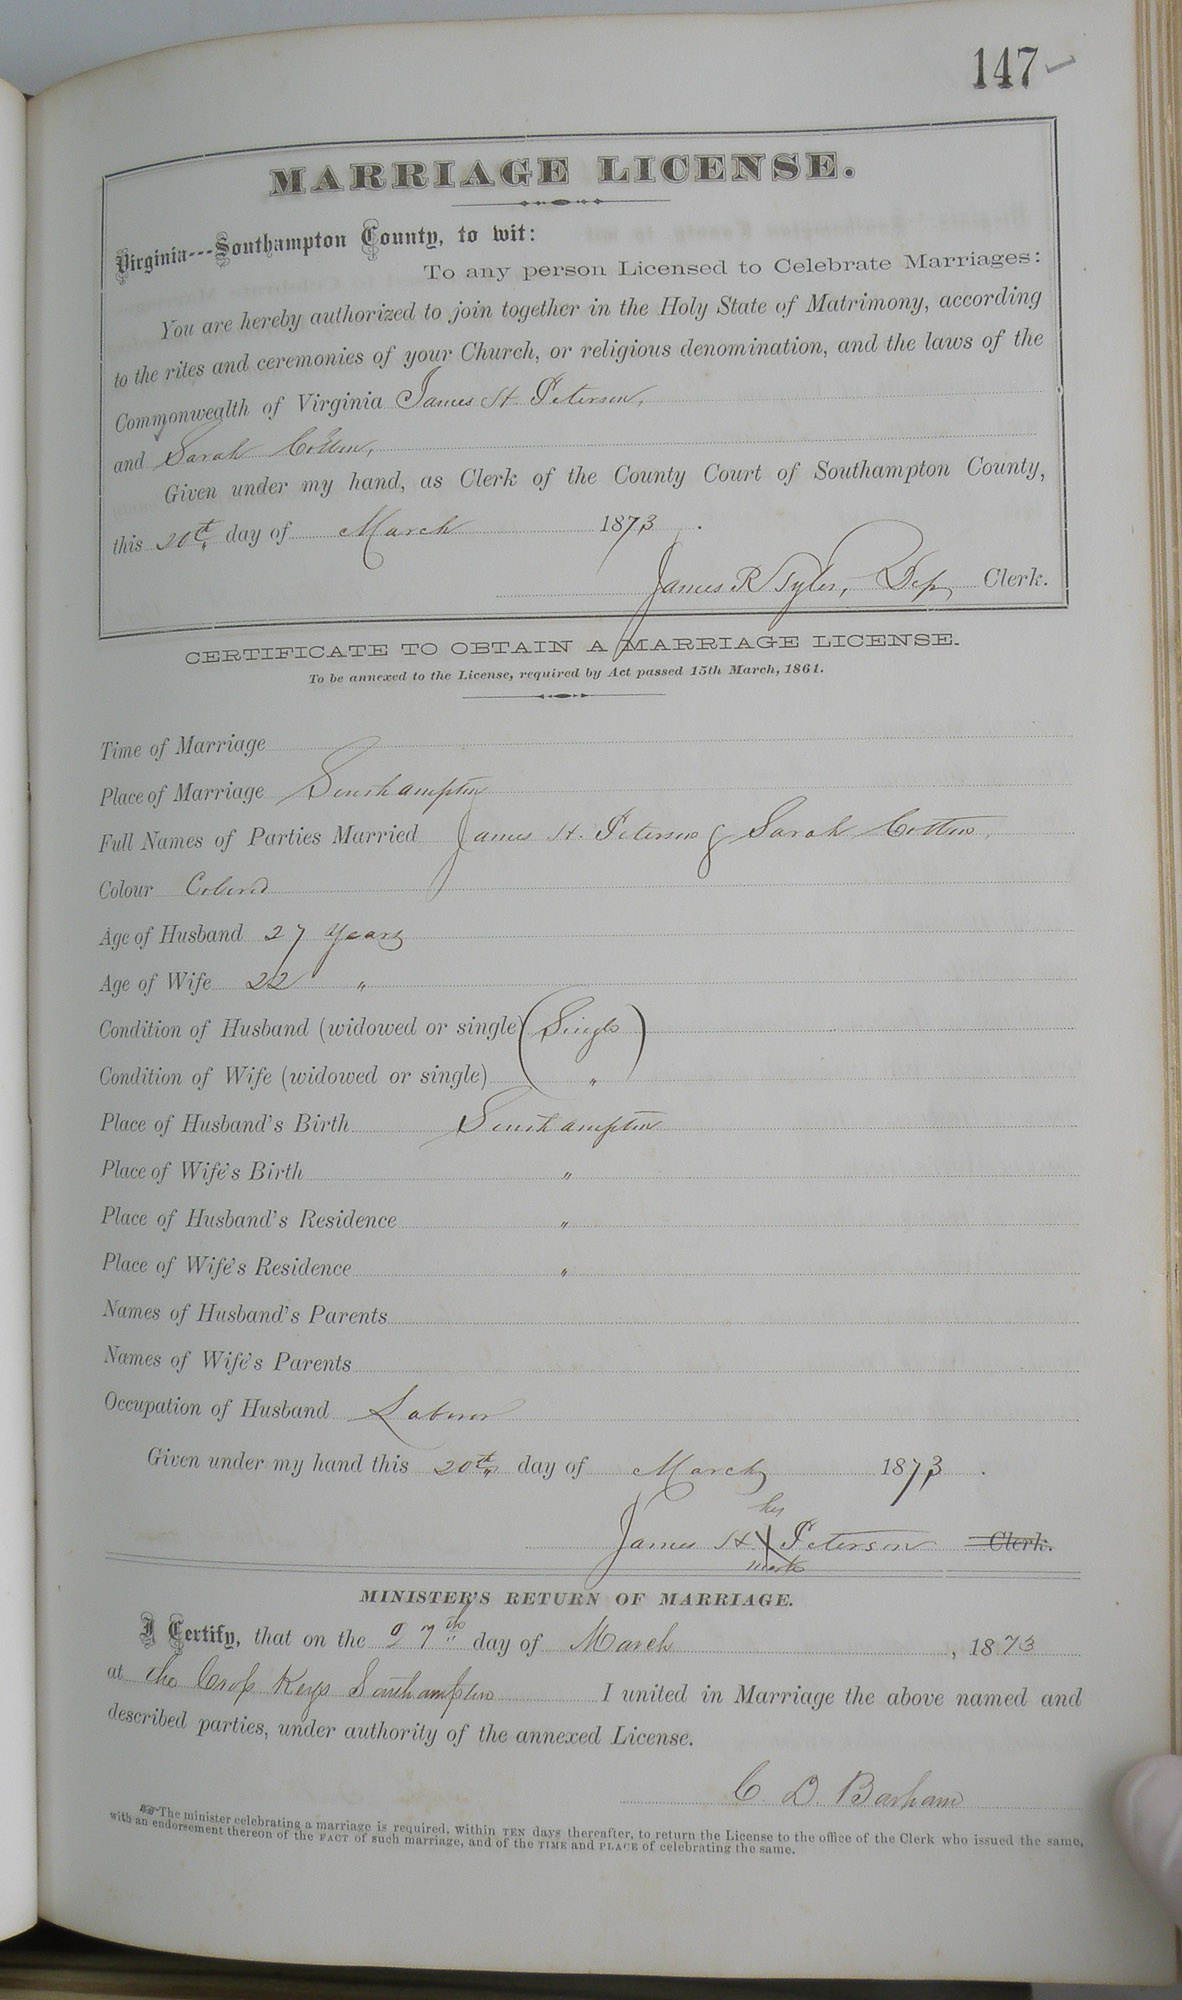 147
MARRIAGE LICENSE.
Virginia---Southampton County, to wit:
To any person Licensed to Celebrate Marriages:
You are hereby authorized to join together in the Holy State of Matrimony, according
to the rites and ceremonies of your Church, or religious denomination, and the laws of the
Commonwealth of Virginia James H. Peterson,
and Sarah Cotton,
Given under my hand, as Clerk of the County Court of Southampton County,
this 20th day of March 1873.
James R Tyler, Dep, Clerk.
CERTIFICATE TO OBTAIN A MARRIAGE LICENSE.
To be annexed to the License, required by Act passed 15th March, 1861.
Time of Marriage
Place of Marriage Southampton
Full Names of Parties Married James H. Peterson & Sarah Cotton,
Colour Colored
Age of Husband 27 Years
Age of Wife 22 "
Condition of Husband (widowed or single) Single
Condition of Wife (widowed or single) "
Place of Husband's Birth Southampton
Place of Wife's Birth "
Place of Husband's Residence "
Place of Wife's Residence "
Names of Husband's Parents
Names of Wife's Parents
Occupation of Husband Laborer
Given under my hand this 20th day of March 1873.
his
James H. X Peterson Clerk.
mark
MINISTER'S RETURN OF MARRIAGE.
I Certify, that on the 27th day of March, 1873
at the Cross Keys Southampton I united in Marriage the above named and
described parties, under authority of the annexed License.
C. D. Barham
The minister celebrating a marriage is required, within TEN days thereafter, to return the License to the office of the Clerk who issued the same,
with an endorsement thereon of the FACT of such marriage, and of the TIME and PLACE of celebrating the same.